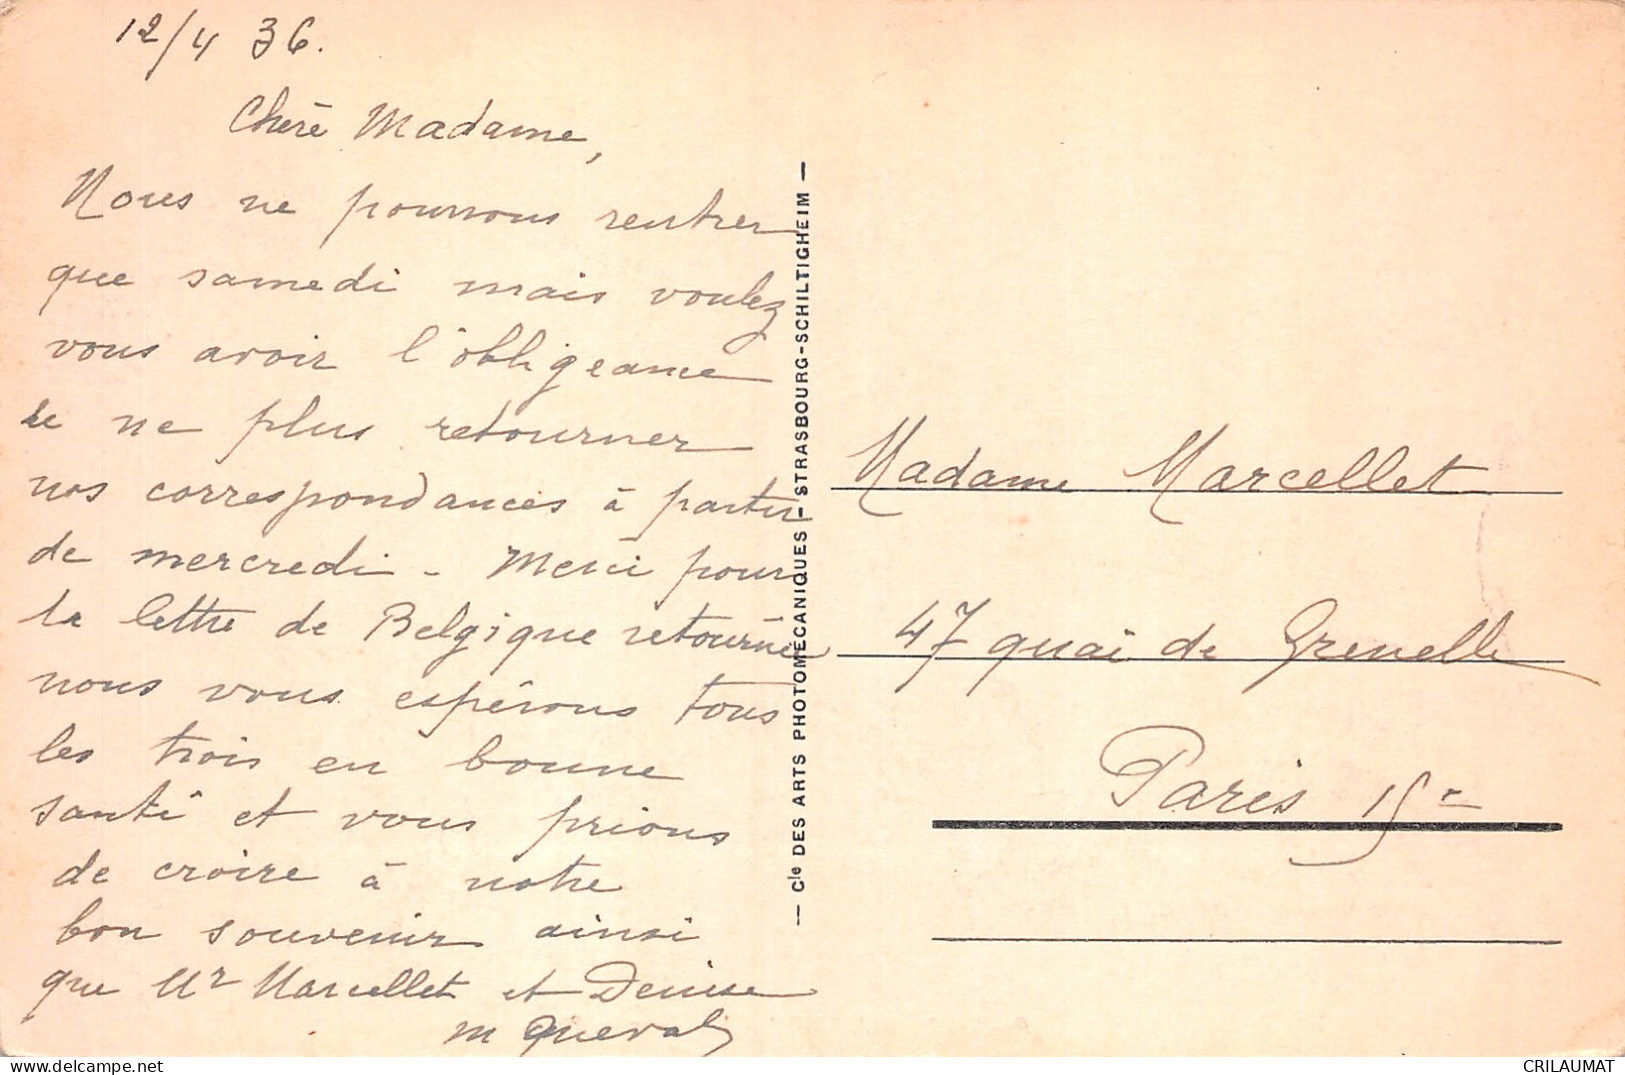 12/4 36.
Chère Madame,
Nous ne pourrons rentrer
que samedi mais voulez
vous avoir l'obligeance
de ne plus retourner
nos correspondances à partir
de mercredi - Merci pour
la lettre de Belgique retournée
nous vous espérons tous
les trois en bonne
santé et vous prions
de croire à notre
bon souvenir ainsi
que Mr Marcellet et Denise
M Queval
— Cie DES ARTS PHOTOMECANIQUES - STRASBOURG-SCHILTIGHEIM —
Madame Marcellet
47 quai de Grenelle
Paris 15e
CRILAUMAT